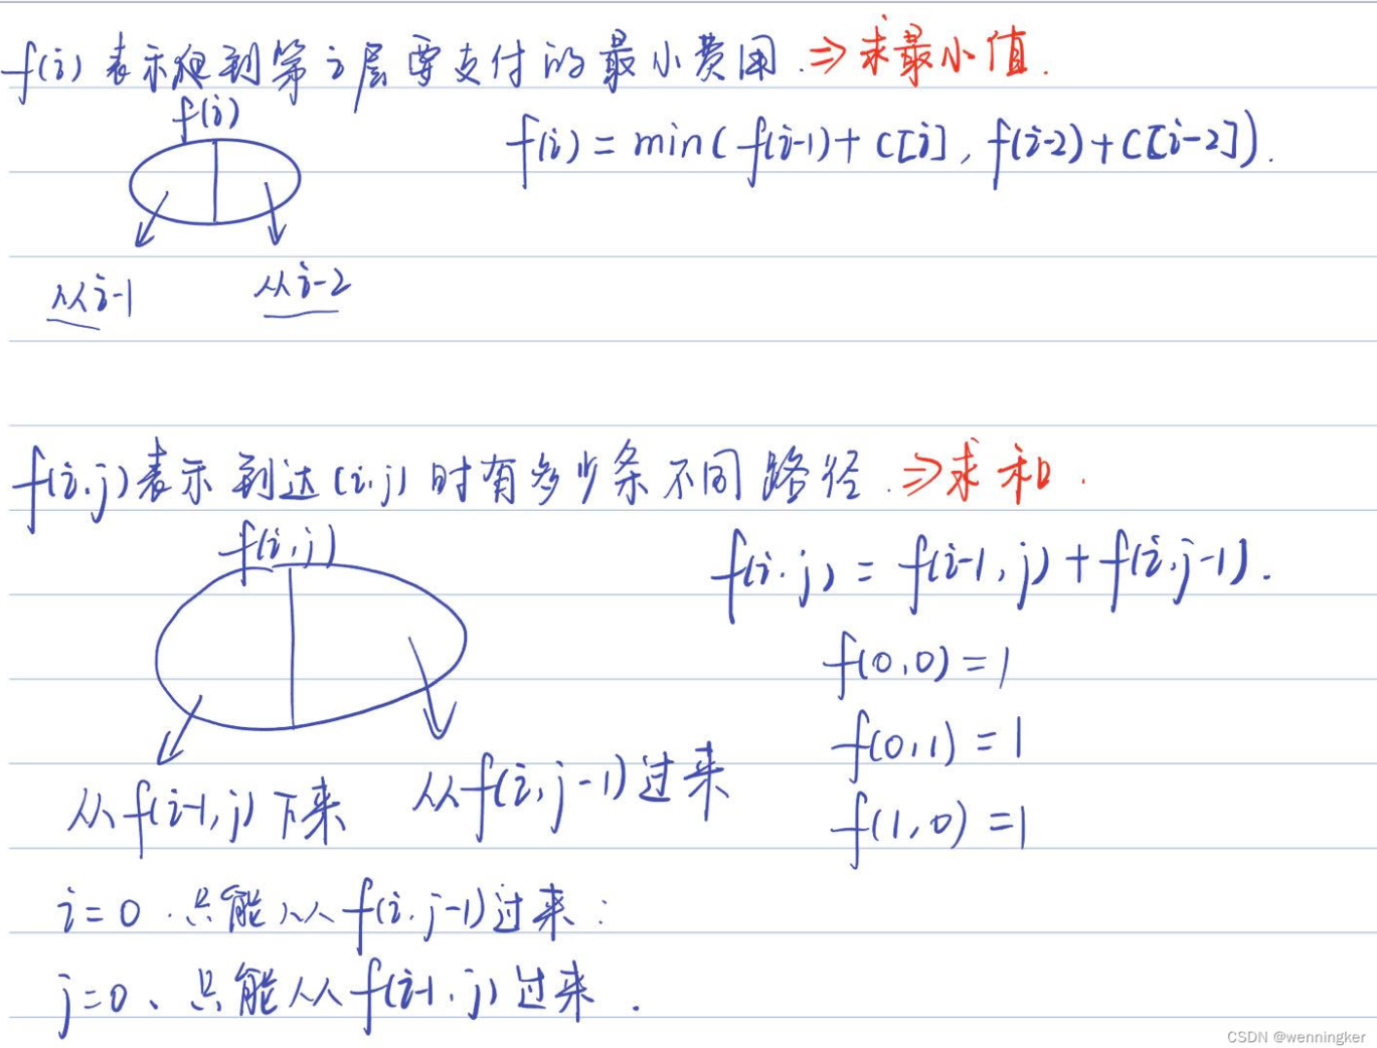 f(i) 表示爬到第 i 层要支付的最小费用. ⇒ 求最小值.
f(i)
f(i) = min( f(i-1) + C[i] , f(i-2) + C[i-2] ).
从 i-1 从 i-2
f(i,j) 表示 到达 (i,j) 时有多少条不同路径. ⇒ 求和.
f(i,j)
f(i,j) = f(i-1, j) + f(i, j-1).
f(0,0) = 1
f(0,1) = 1
从 f(i-1, j) 下来 从 f(i, j-1) 过来
f(1,0) = 1
i=0. 只能从 f(i,j-1) 过来:
j=0、只能从 f(i-1,j) 过来.
CSDN @wenningker